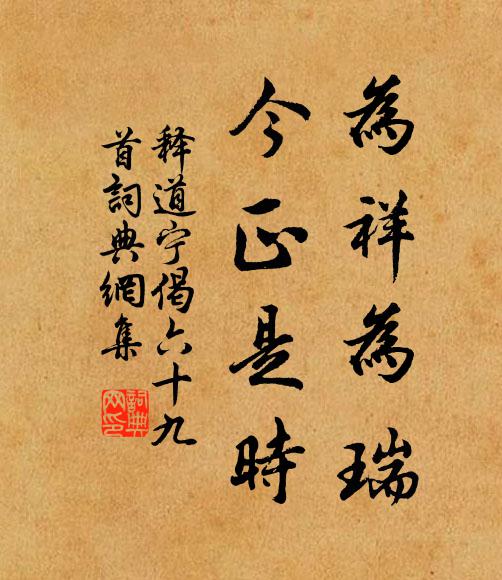 為祥為瑞
今正是時
释道宁偈六十九
首詞典網集
詞典
网印